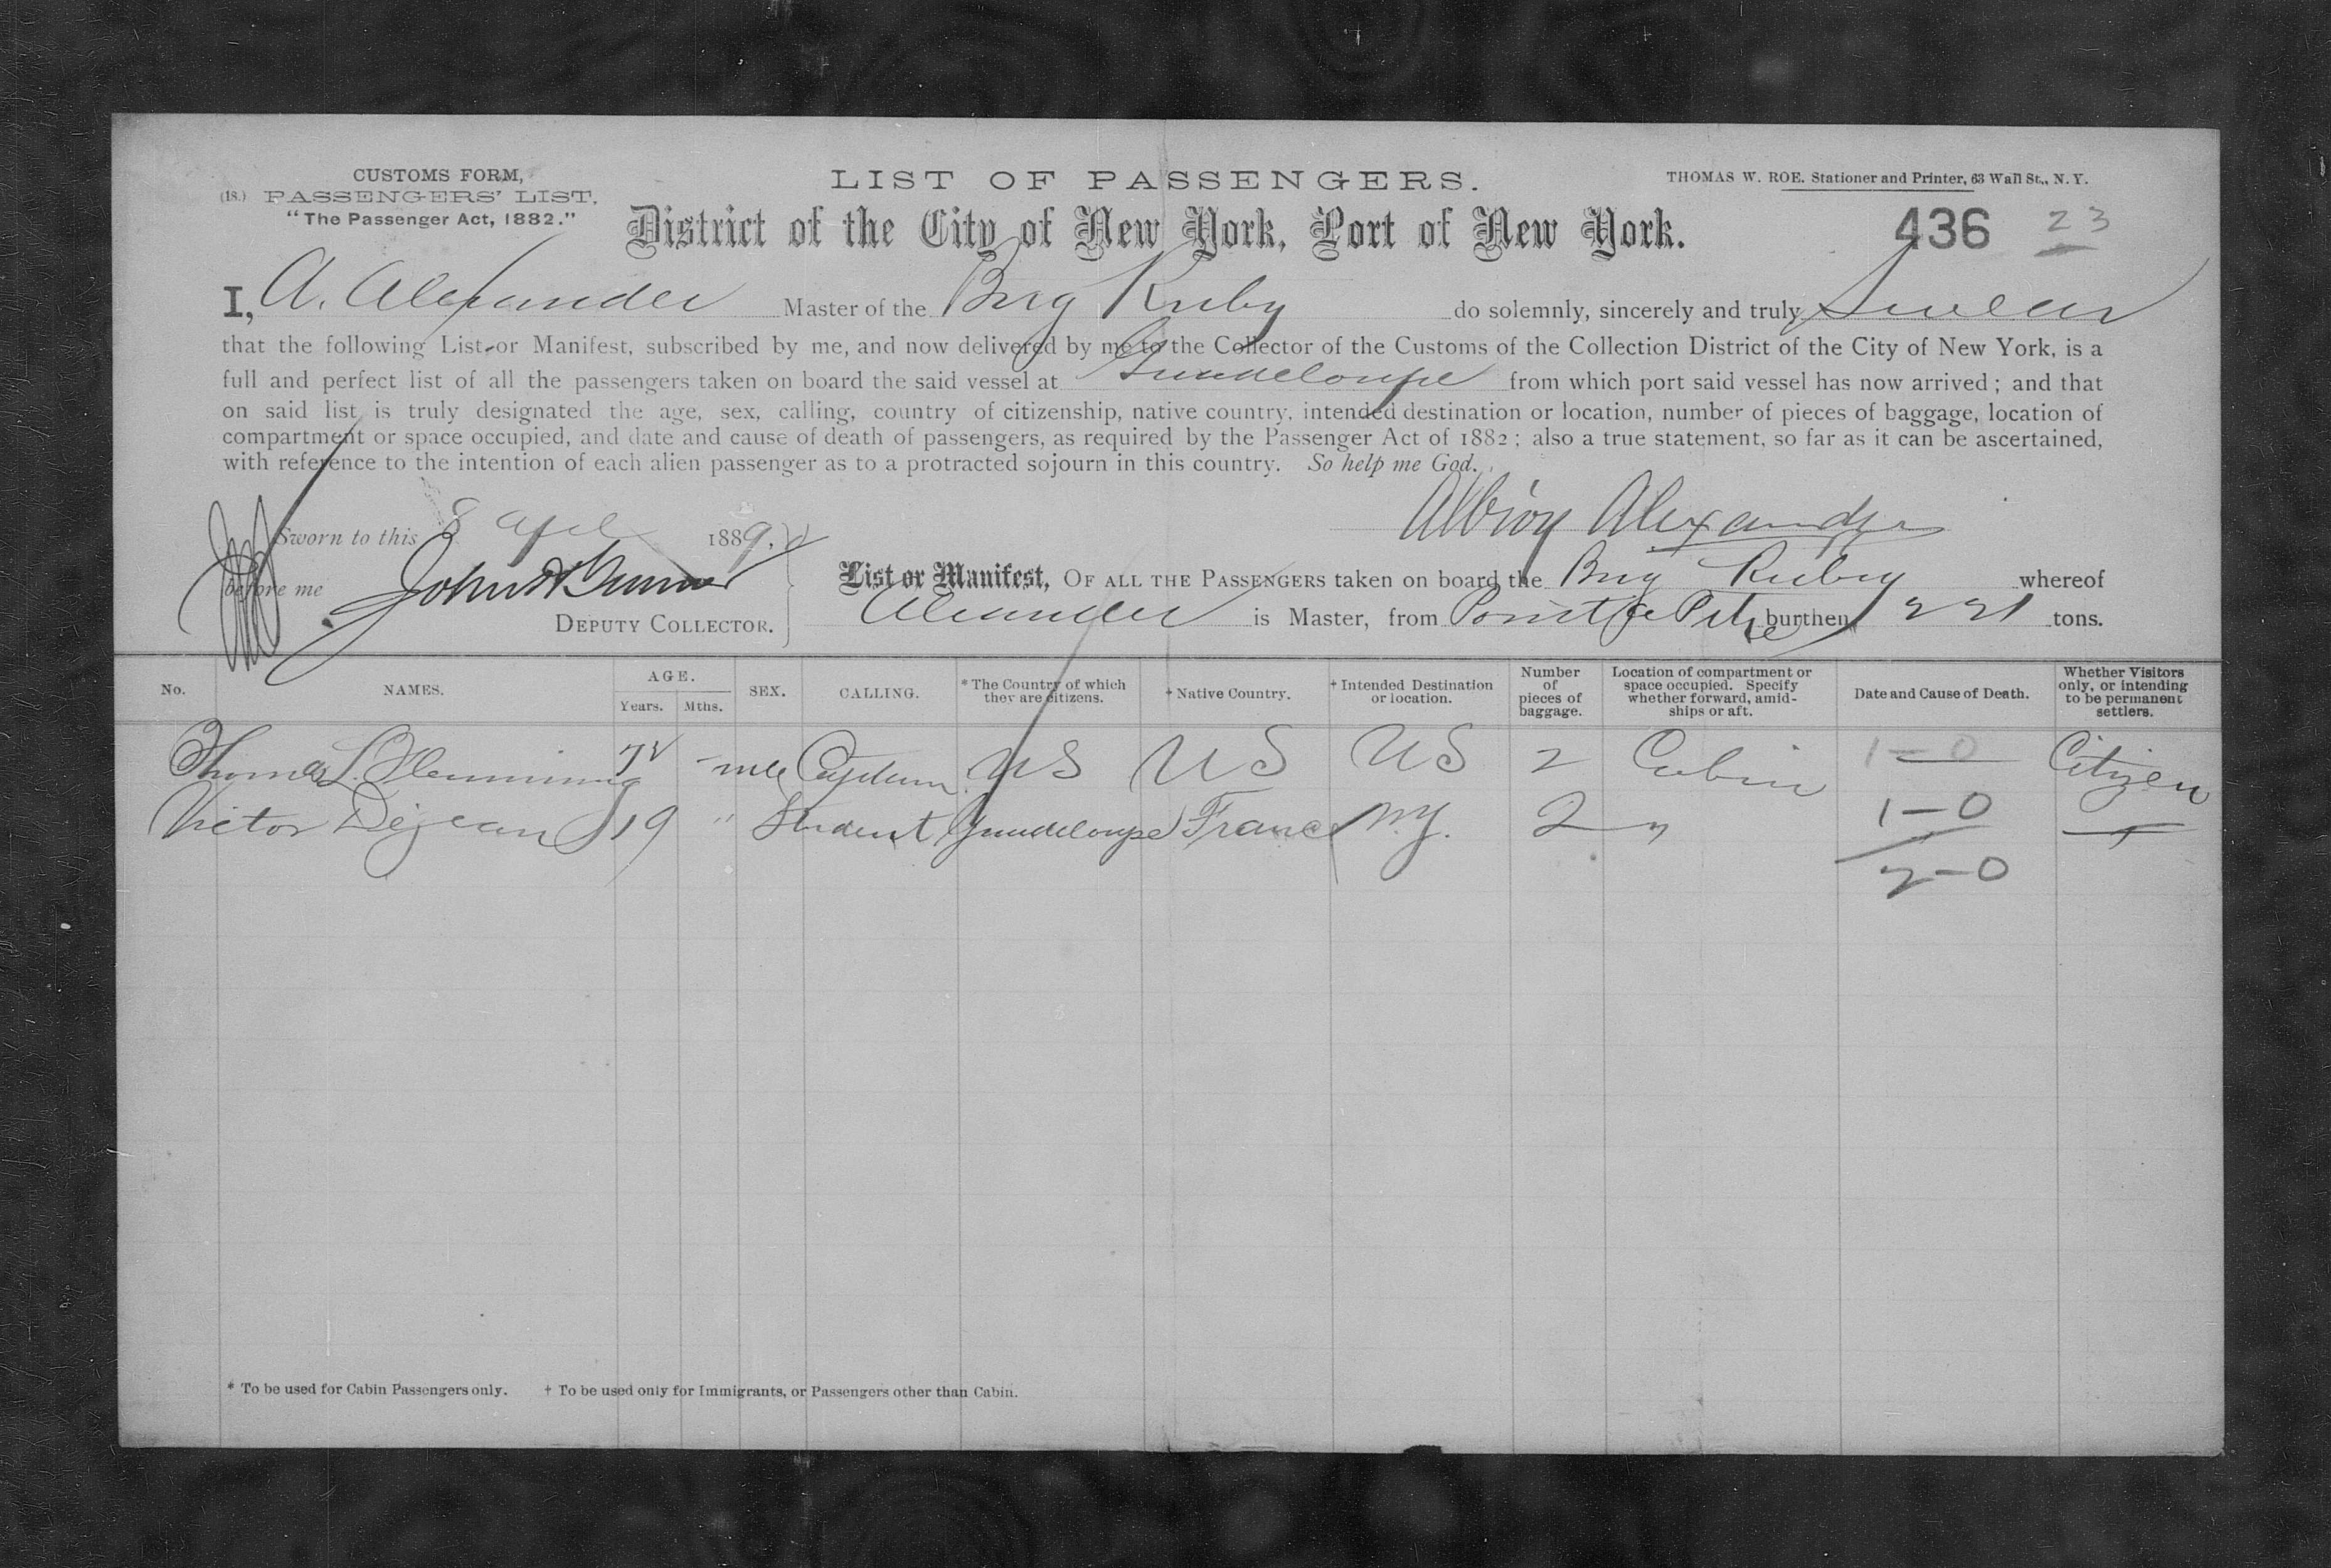 CUSTOMS FORM,
(18.) PASSENGERS' LIST,
"The Passenger Act, 1882."
LIST OF PASSENGERS.
THOMAS W. ROE. Stationer and Printer, 63 Wall St., N. Y.
District of the City of New York, Port of New York.
436 23
I, A. Alexander Master of the Brig Ruby do solemnly, sincerely and truly Swear
that the following List or Manifest, subscribed by me, and now delivered by me to the Collector of the Customs of the Collection District of the City of New York, is a
full and perfect list of all the passengers taken on board the said vessel at Guadeloupe from which port said vessel has now arrived; and that
on said list is truly designated the age, sex, calling, country of citizenship, native country, intended destination or location, number of pieces of baggage, location of
compartment or space occupied, and date and cause of death of passengers, as required by the Passenger Act of 1882; also a true statement, so far as it can be ascertained,
with reference to the intention of each alien passenger as to a protracted sojourn in this country. So help me God.
Albion Alexander
Sworn to this 8 April 1889.
before me John
DEPUTY COLLECTOR.
List or Manifest, OF ALL THE PASSENGERS taken on board the Brig Ruby whereof
Alexander is Master, from Point a Pitre burthen 221 tons.
No. NAMES. AGE. Years. Mths. SEX. CALLING. * The Country of which they are citizens. † Native Country. † Intended Destination or location. Number of pieces of baggage. Location of compartment or space occupied. Specify whether forward, amid-ships or aft. Date and Cause of Death. Whether Visitors only, or intending to be permanent settlers.
Thomas L. Flemming mle Captain US US US 2 Cabin 1-0 Citizen
Victor Dejean 19 " Student Guadeloupe France N.Y. 2 " 1-0
2-0
* To be used for Cabin Passengers only. † To be used only for Immigrants, or Passengers other than Cabin.